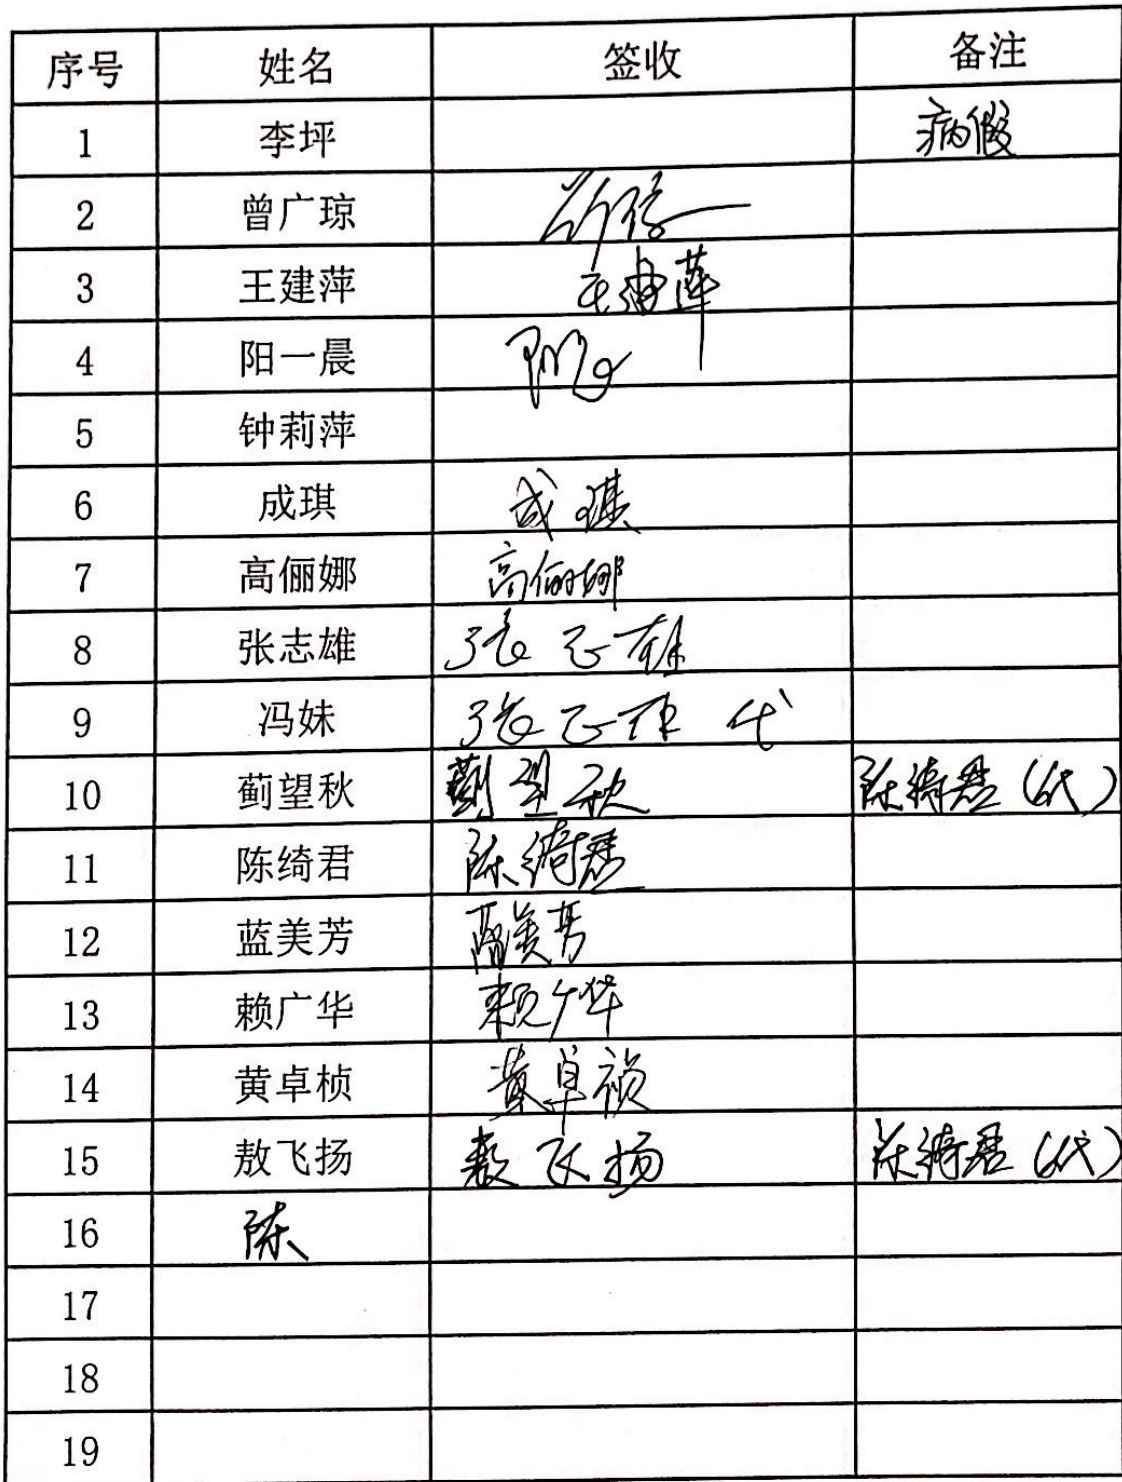 序号 姓名 签收 备注
1 李坪 病假
2 曾广琼
3 王建萍 王建萍
4 阳一晨
5 钟莉萍
6 成琪 成琪
7 高俪娜 高俪娜
8 张志雄 张志雄
9 冯妹 张志雄 代
10 蓟望秋 蓟望秋 陈绮君(代)
11 陈绮君 陈绮君
12 蓝美芳 蓝美芳
13 赖广华 赖广华
14 黄卓桢 黄卓祯
15 敖飞扬 敖飞扬 陈绮君(代)
16 陈
17
18
19